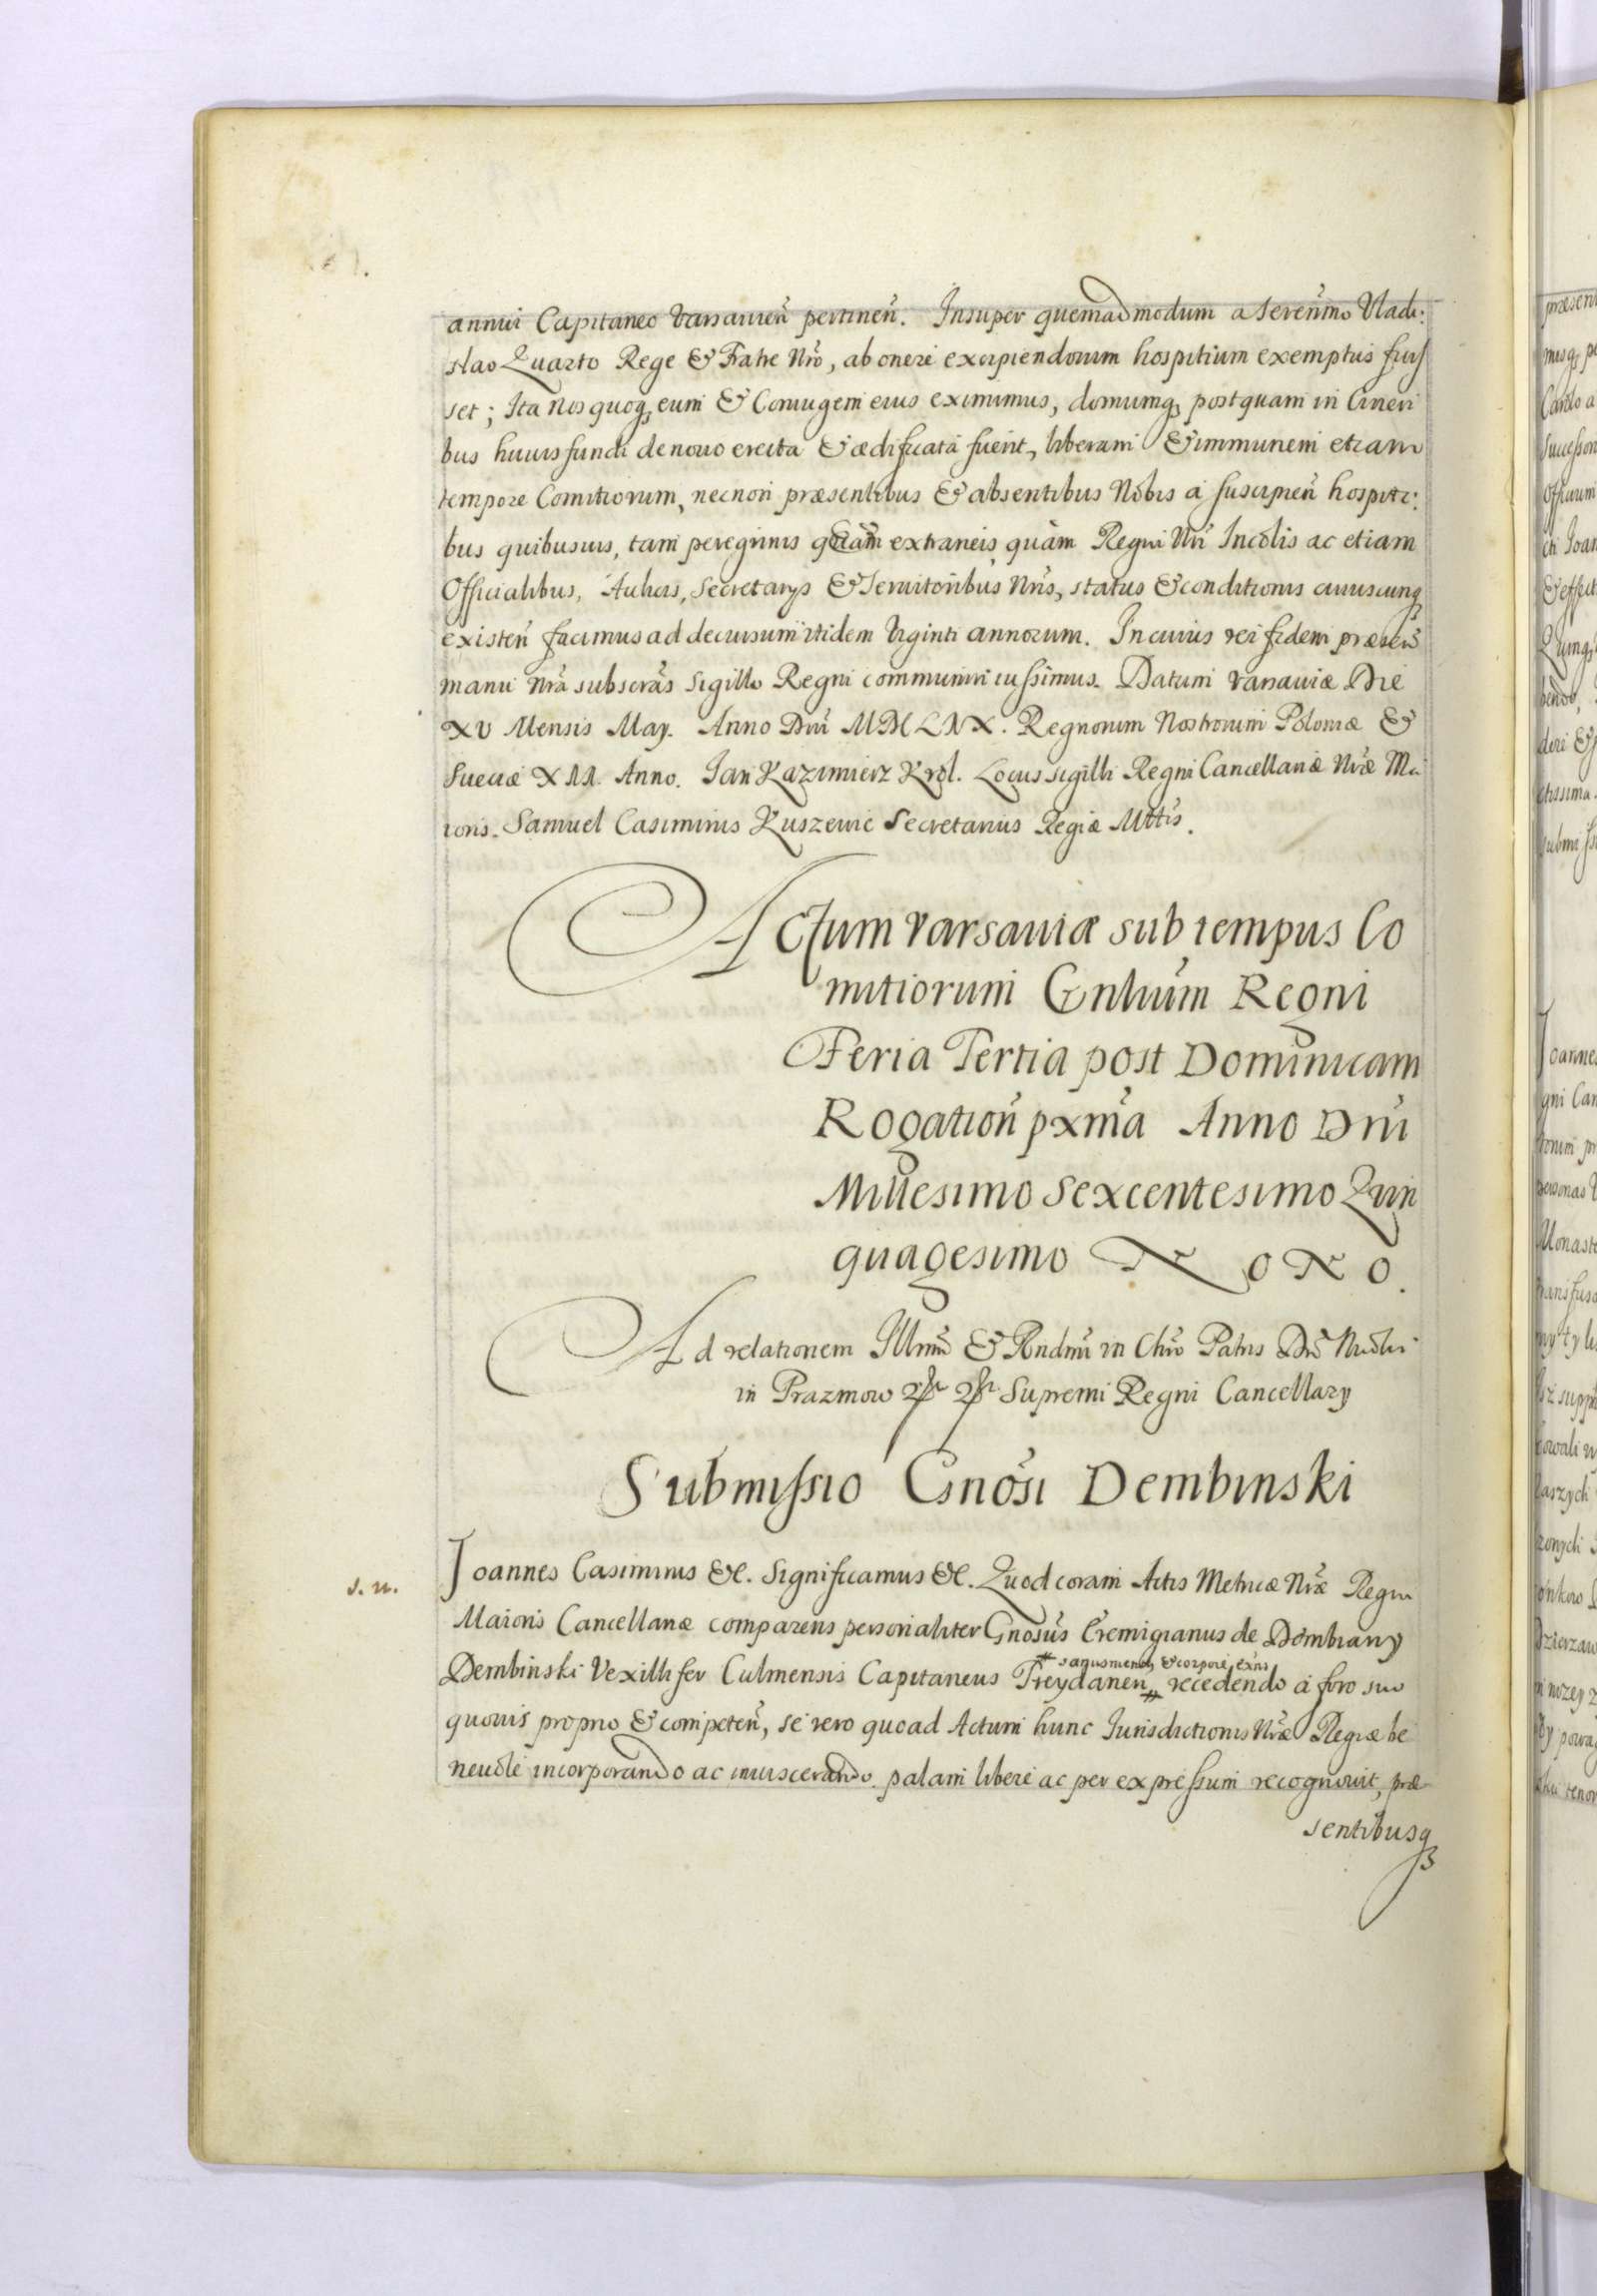 annui Capitaneo Varsavien̄ pertinen̄. Insuper quemadmodum a Seren̄mo Vladi:
slao Quarto Rege & Fatre Nr̄o, ab onere excipiendorum hospitium exemptus fuis
set; Ita Nos quoq₃ eum & Coniugem eius eximimus, domumq₃ postquam in Cineri
bus huius fundi de novo erecta & ædificata fuerit, liberam & immunem etiam
tempore Comitiorum, necnon præsentibus & absentibus Nobis a suscipien̄ hospiti:
bus quibusvis, tam peregrinis quàm extraneis quàm Regni Nr̄i Incolis ac etiam
Officialibus, Aulicis, Secretarys & Servitoribus Nr̄is, status & conditionis cuiuscunq₃
existen̄ facimus ad decursum itidem Viginti annorum. In cuius rei fidem præsen̄
manu Nr̄a subscrās Sigillo Regni communiri iussimus. Datum Varsaviæ Die
XV Mensis May. Anno Dn̄i MDCLIX. Regnorum Nostrorum Poloniæ &
Sueciæ XII. Anno. Jan Kazimierz Krol. Locus sigilli Regni Cancellariæ Nr̄æ Ma
ioris. Samuel Casimirus Kuszewic Secretarius Regiæ Mttis.
Actum Varsaviæ sub tempus Co
mitiorum Gnl̄ium Regni
Feria Tertia post Dominicam
Rogation̄ pxm̄a Anno Dn̄i
Millesimo Sexcentesimo Quin
quagesimo NONO.
Ad relationem Illmi & Rndmi in Chr̄o Patris Dn̄i Nicolai
in Prazmow Supremi Regni Cancellary
Submissio Gnōsi Dembinski
s. n.
Joannes Casimirus &c. Significamus &c. Quod coram Actis Metricæ Nr̄æ Regni
Maioris Cancellariæ comparens personaliter Gnosus Cremigianus de Dombiany
# sanus mente & corpore exn̄s
Dembinski Vexillifer Culmensis Capitaneus Treydanen̄ # recedendo à foro suo
quovis proprio & competen̄, se vero quoad Actum hunc Jurisdictionis Nr̄æ Regiæ be
nevole incorporando ac inviscerando. palam libere ac per expressum recognovit, præ
sentibusq₃